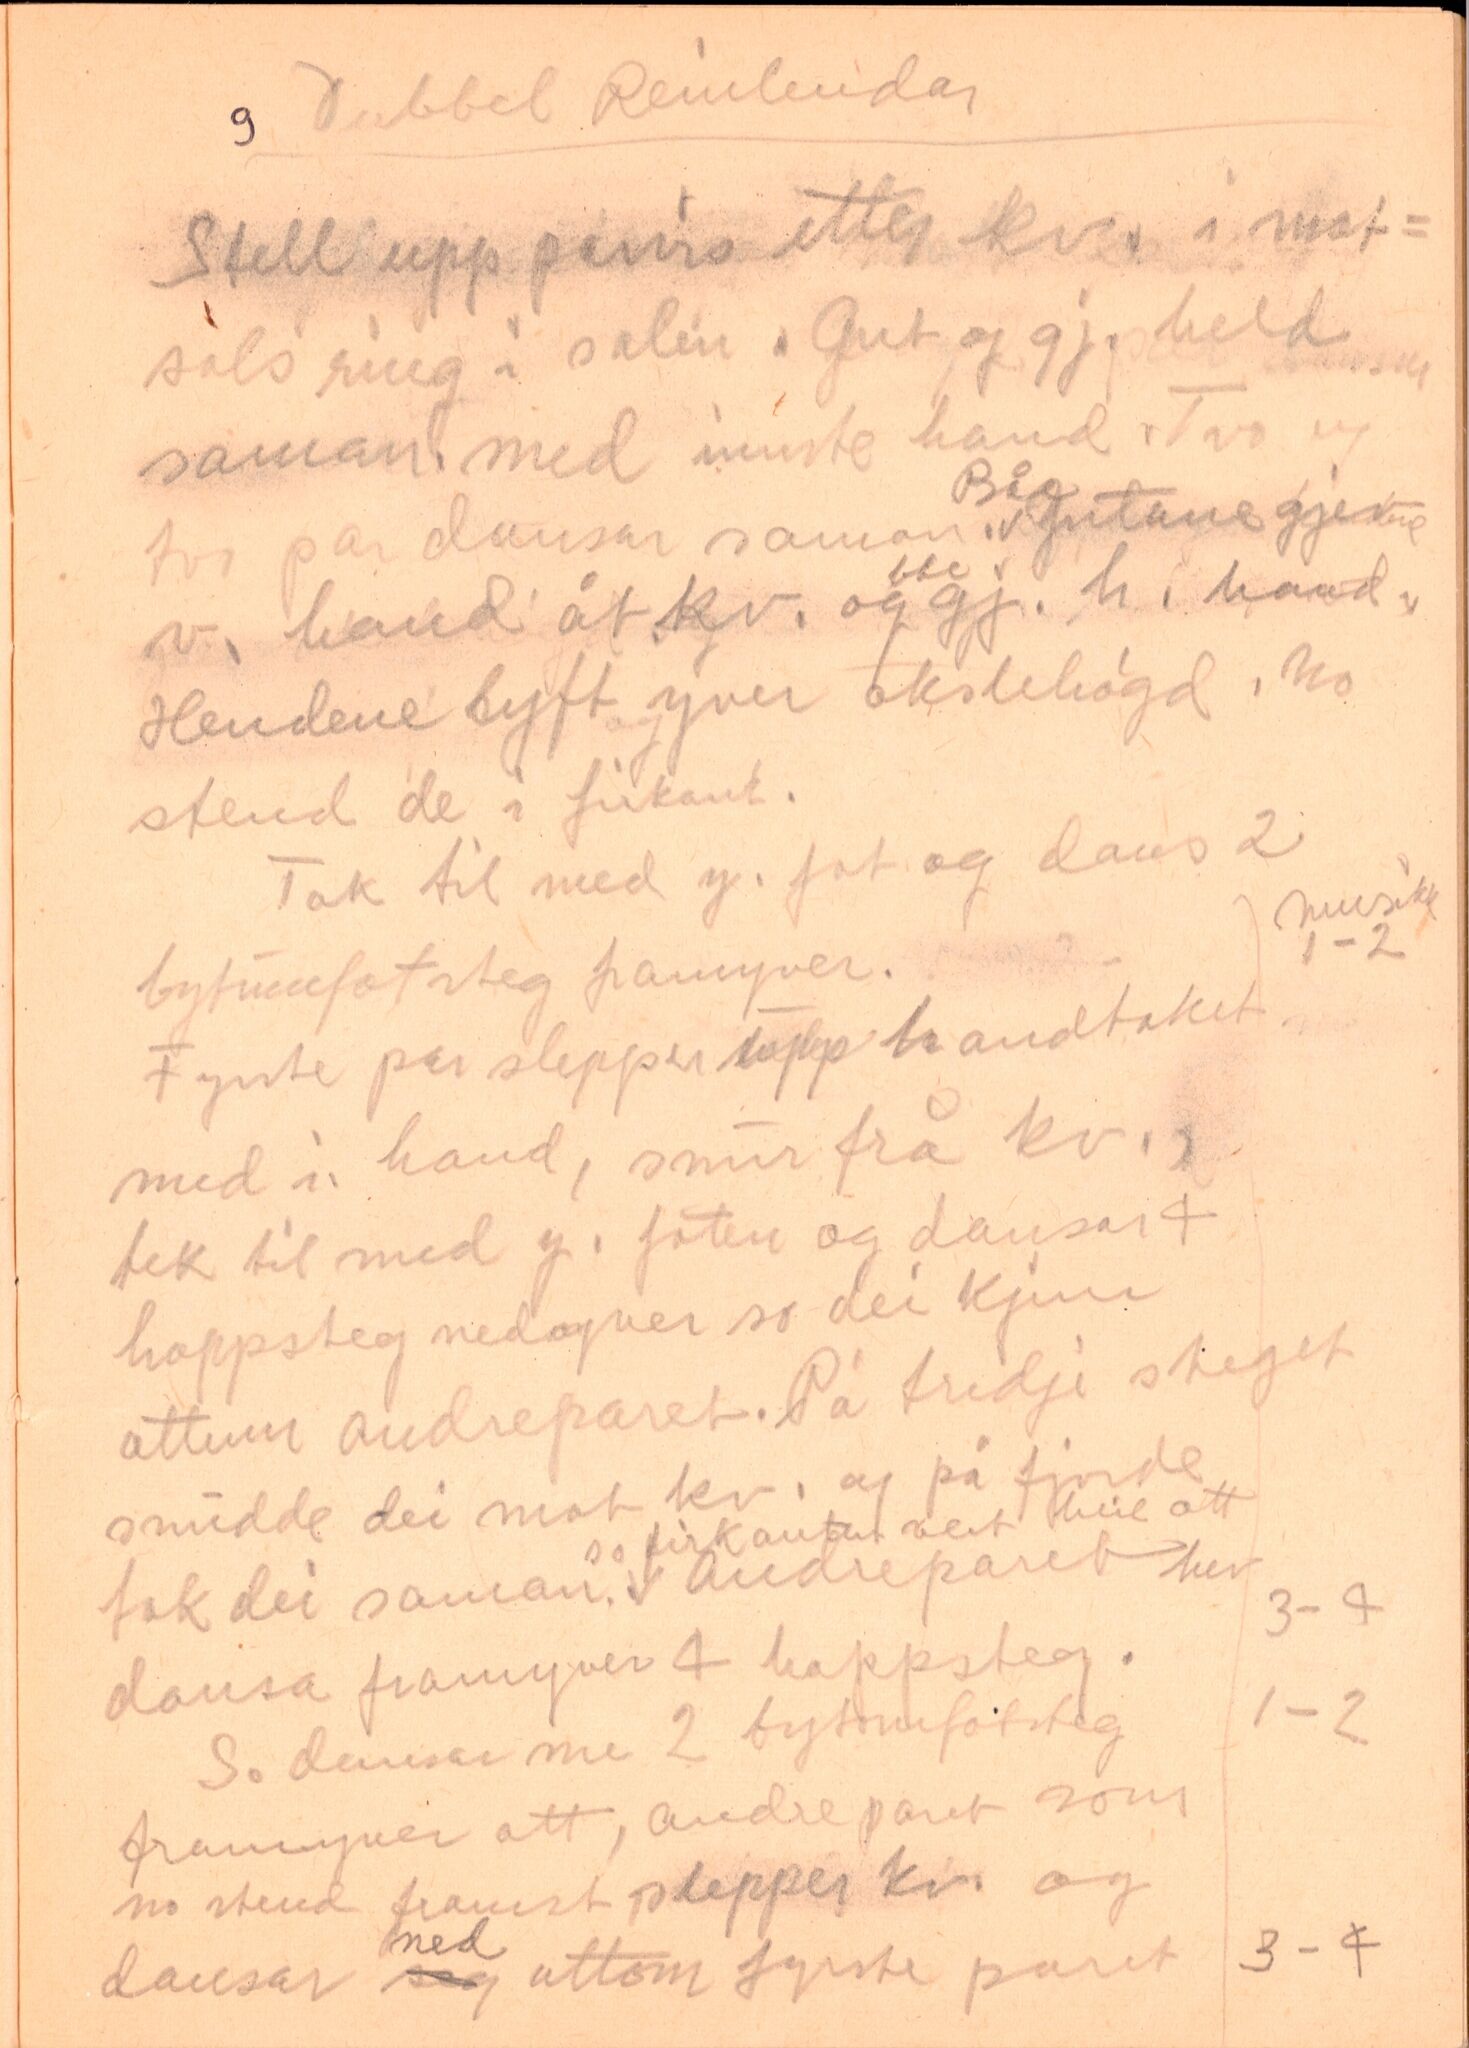 9 Dubbel Reinlendar
Stell upp parvis etter kv. i mot=
sols ring i salen. Gut og gj. held
saman med inste hand. Two og
two par dansar saman. Båe gutane gjev
v. hand åt kv. og bbe gj. h. hand.
Hendene lyft og yver okslehøgd. No
stend de i firkant.
Tak til med y. fot og dans 2
musikk
1-2
bytomfotsteg framyver.
Fyrste par slepper upp handtaket
med i. hand, snur frå kv.,
tek til med y. foten og dansar 4
hoppsteg nedoyver so dei kjem
attum andreparet. På tridje steget
snudde dei mot kv. og på fjorde
tok dei saman. so firkanten vert heil att Andreparet hev
3-4
dansa framyver 4 hoppsteg.
So dansar me 2 bytomfotsteg
1-2
framyver att, andreparet som
no stend framst slepper kv. og
dansar ned attom fyrste paret
3-4